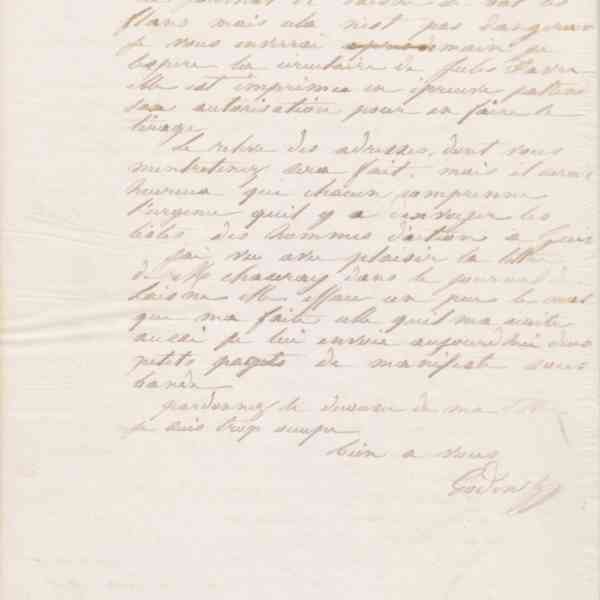 journal de
plans mais cela n'est pas dangereux
je vous enverrai demain je
l'espère la circulaire de Jules Favre
elle est imprimée en épreuve j'attend
son autorisation pour en faire le
tirage
Le relevé des adresses, dont vous
m'entretenez sera fait, mais il serait
heureux que chacun comprenne
l'urgence qu'il y a d'envoyer les
listes des hommes d'action a Guise
j'ai vu avec plaisir la lettre
de M chauvray dans le journal de
laisne elle efface un peu le mal
que ma faite celle qu'il ma écrite
aussi je lui envoie aujourd'hui deux
petits paquets de manifeste sous
bande
pardonnez le décousu de ma
je suis trop occupé
bien a vous
Godin